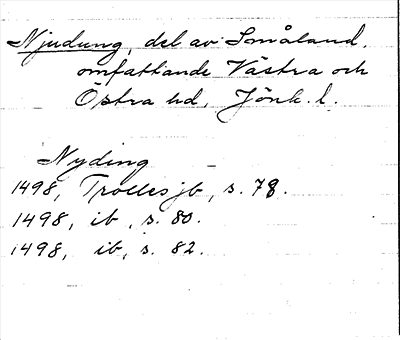 Njudung, del av Småland,
omfattande Västra och
Östra hd, Jönk. l.
Nyding
1498, Trolles jb, s. 78.
1498, ib, s. 80.
1498, ib, s. 82.